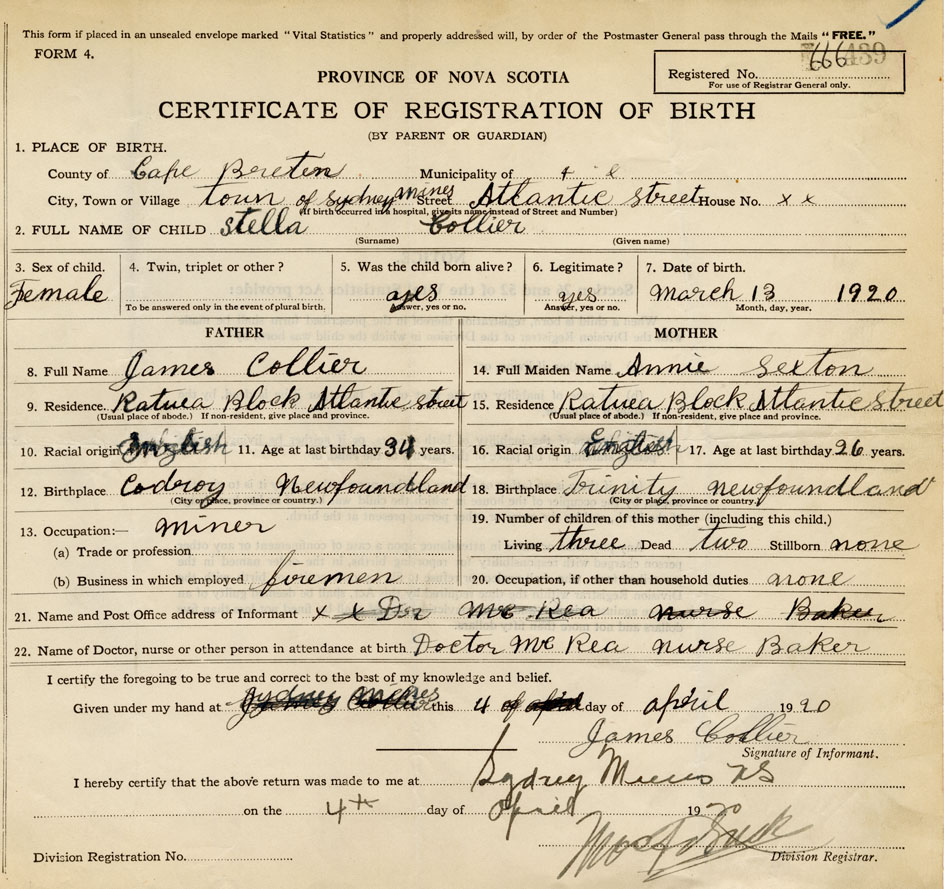 This form if placed in an unsealed envelope marked "Vital Statistics" and properly addressed will, by order of the Postmaster General pass through the Mails "FREE."
FORM 4.
PROVINCE OF NOVA SCOTIA
Registered No.
For use of Registrar General only.
CERTIFICATE OF REGISTRATION OF BIRTH
(BY PARENT OR GUARDIAN)
1. PLACE OF BIRTH.
County of Cape Breton Municipality of
City, Town or Village town of Sydney mines Street Atlantic street House No. x x
(If birth occurred in a hospital, give its name instead of Street and Number)
2. FULL NAME OF CHILD stella Collier
(Surname) (Given name)
3. Sex of child. 4. Twin, triplet or other? 5. Was the child born alive? 6. Legitimate? 7. Date of birth.
Female yes yes march 13 1920
To be answered only in the event of plural birth. Answer, yes or no. Answer, yes or no. Month, day, year.
FATHER MOTHER
8. Full Name James Collier 14. Full Maiden Name Annie Sexton
9. Residence. Block Atlantic street 15. Residence Block Atlantic street
(Usual place of abode.) If non-resident, give place and province. (Usual place of abode.) If non-resident, give place and province.
10. Racial origin English 11. Age at last birthday 34 years. 16. Racial origin English 17. Age at last birthday 26 years.
12. Birthplace Codroy Newfoundland 18. Birthplace Trinity newfoundland
(City or place, province or country.) (City or place, province or country.)
13. Occupation:— miner 19. Number of children of this mother (including this child.)
(a) Trade or profession Living three Dead two Stillborn none
(b) Business in which employed firemen 20. Occupation, if other than household duties none
21. Name and Post Office address of Informant x x Dr Mc Rea nurse Baker
22. Name of Doctor, nurse or other person in attendance at birth Doctor Mc Rea nurse Baker
I certify the foregoing to be true and correct to the best of my knowledge and belief.
Given under my hand at Sydney mines this 4 of day of april 1920
James Collier
Signature of Informant.
I hereby certify that the above return was made to me at Sydney Mines NS
on the 4th day of April 1920
Division Registration No. Division Registrar.